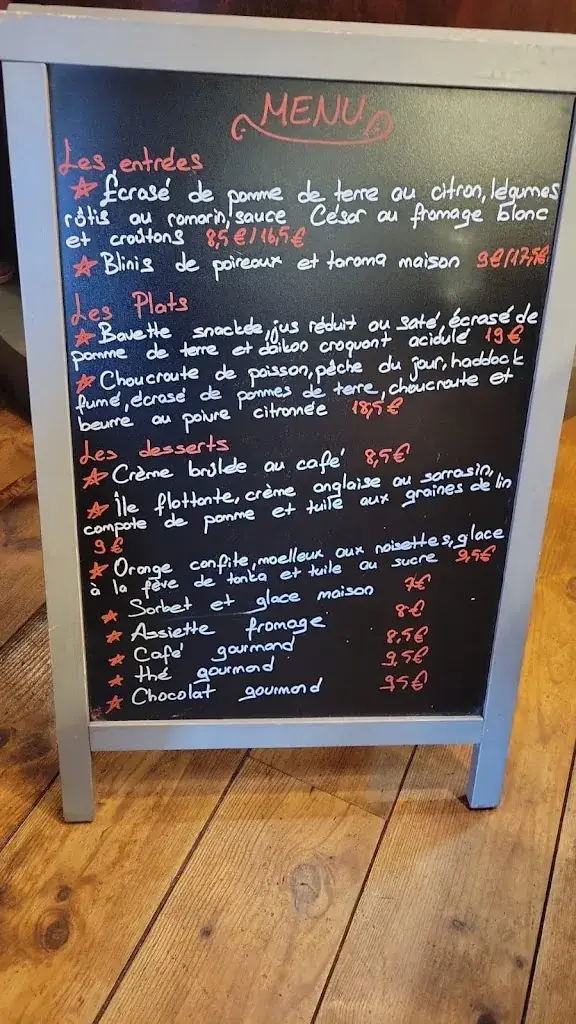 MENU
Les entrées
Écrasé de pomme de terre au citron, légumes
rôtis au romarin, sauce César au fromage blanc
et croûtons 8,5€/16,5€
Blinis de poireaux et tarama maison 9€/17,5€
Les Plats
Bavette snackée, jus réduit au saté, écrasé de
pomme de terre et daïkon croquant acidulé 19€
Choucroute de poisson, pêche du jour, haddock
fumé, écrasé de pommes de terre, choucroute et
beurre au poivre citronnée 18,5€
Les desserts
Crème brûlée au café 8,5€
Île flottante, crème anglaise au sarrasin,
compote de pomme et tuile aux graines de lin
9€
Orange confite, moelleux aux noisettes, glace
à la fève de tonka et tuile au sucre 9,5€
Sorbet et glace maison 7€
Assiette fromage 8€
Café gourmand 8,5€
thé gourmand 9,5€
Chocolat gourmand 9,5€